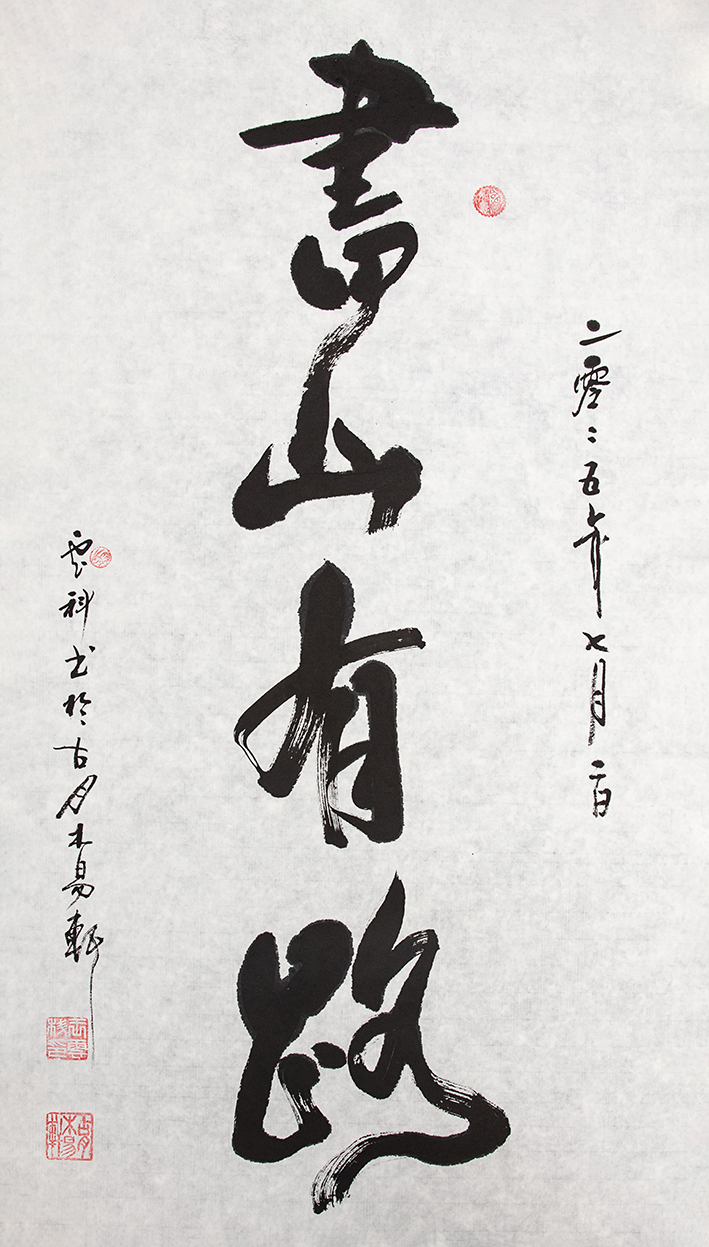 二零二五年七月二日
書山有路
雲科书於古月木易軒